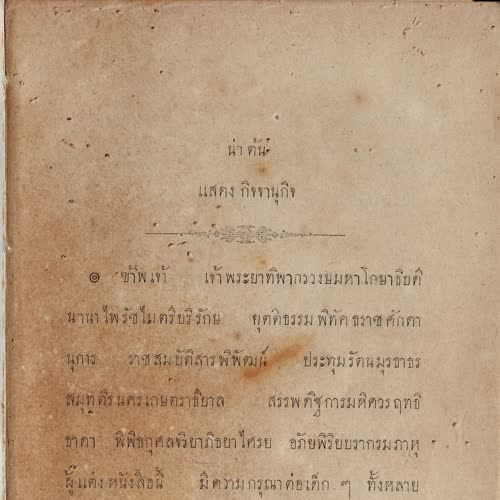 น่า ต้น
แสดง กิจจานุกิจ
๏ ข้าพเจ้า เจ้าพระยาทิพากรวงษมหาโกษาธิบดี
นานาไพรัชไมตรีบริรักษ ยุตติธรรมพิทักธราชศักดา
นุการ ราชสมบัติสารพิพัฒน์ ประทุมรัตนมุรธาธร
สมุทตีรนครเกษตราธิบาล สรรพดิฐการมหิศวรฤทธิ
ธาดา พิพิธกุศลจริยาภิธยาไศรย อภัยพิริยบรากรมภาหุ
ผู้แต่งหนังสือนี้ มีความกรุณาต่อเด็ก ๆ ทั้งหลาย